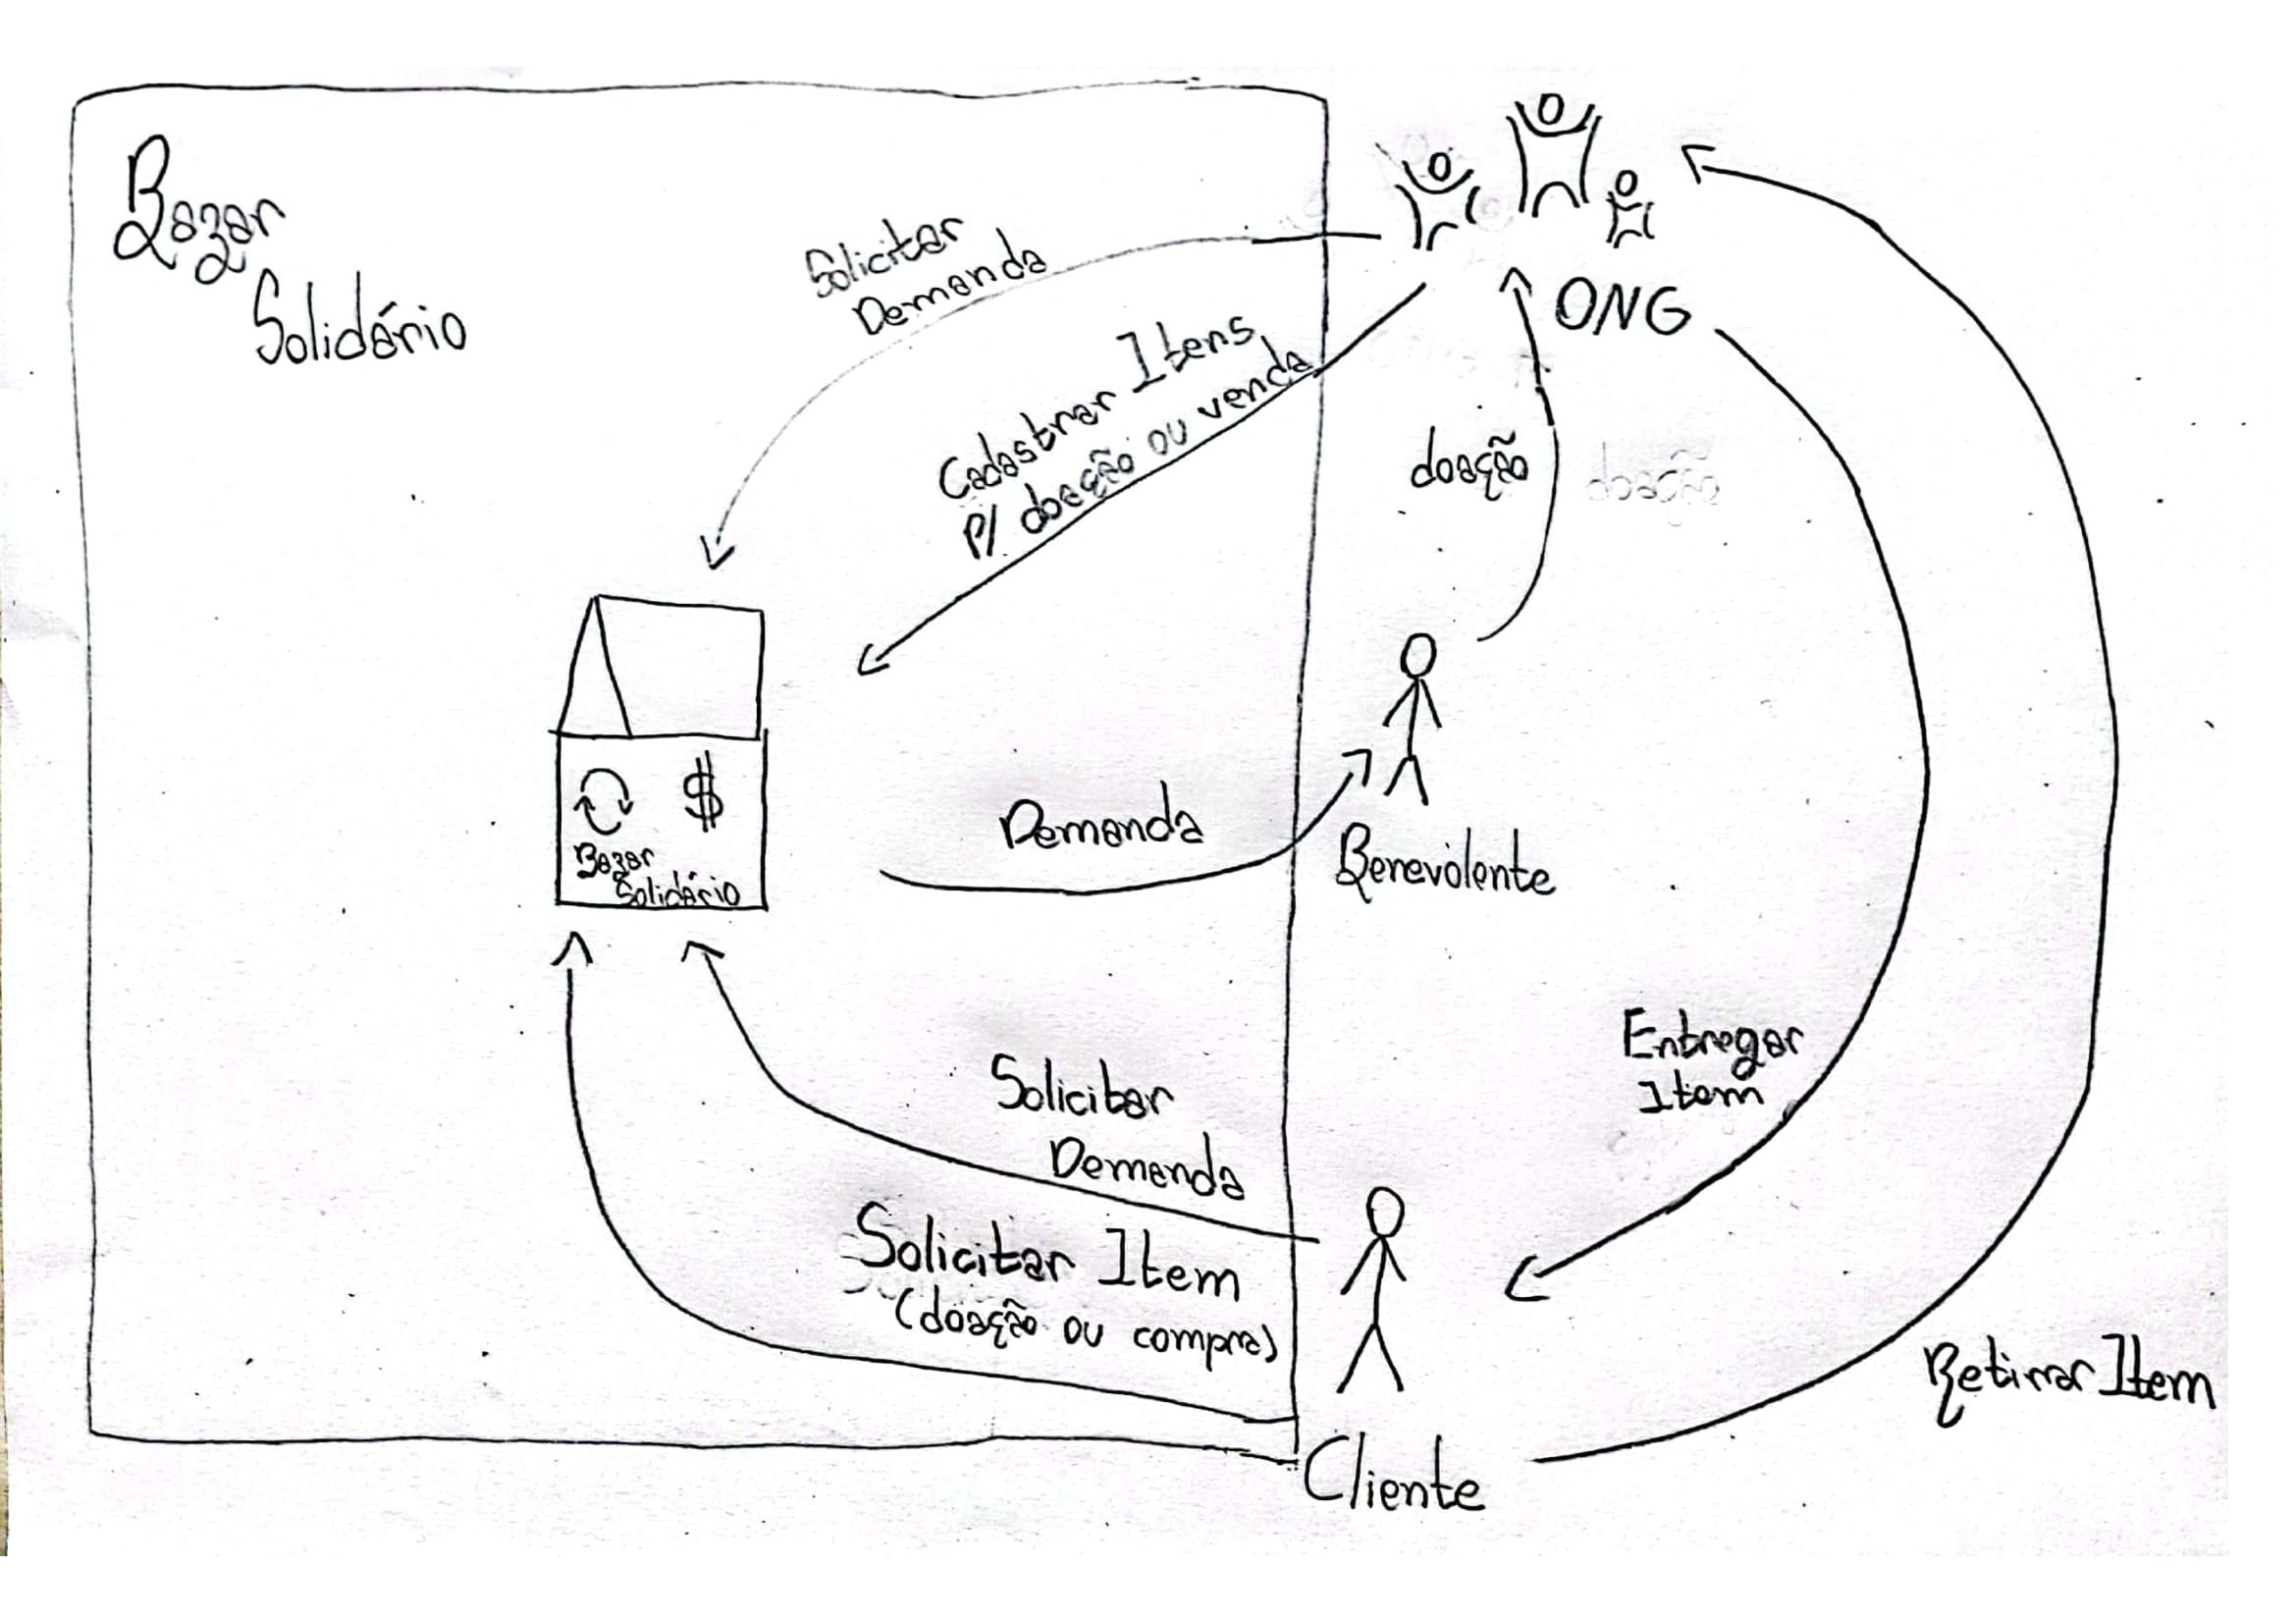 Bazar
Solidário
Solicitar
Demanda
Cadastrar Itens
P/ doação ou venda
ONG
doação
Bazar
Solidário
Demanda
Benevolente
Solicitar
Demanda
Entregar
Item
Solicitar Item
(doação ou compra)
Retirar Item
Cliente